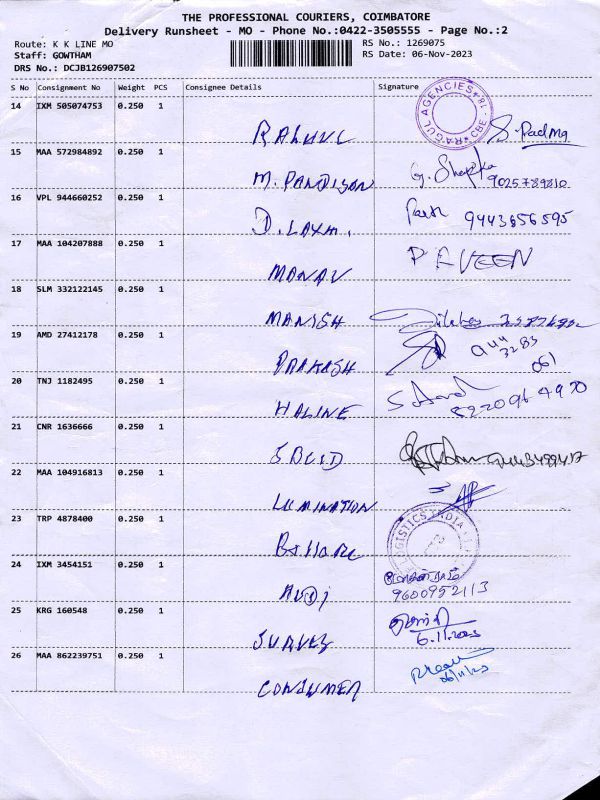 THE PROFESSIONAL COURIERS, COIMBATORE
Delivery Runsheet - MO - Phone No.:0422-3505555 - Page No.:2
Route: K K LINE MO RS No.: 1269075
Staff: GOWTHAM RS Date: 06-Nov-2023
DRS No.: DCJB126907502
S No Consignment No Weight PCS Consignee Details Signature
14 IXM 505074753 0.250 1
RAGUL AGENCIES CBE - 18
S. Padma
15 MAA 572984892 0.250 1
M. PANDISON 9025789810
16 VPL 944660252 0.250 1
D. LAXMI 9443656595
17 MAA 104207888 0.250 1
MANAV PRAVEEN
18 SLM 332122145 0.250 1
MANISH
19 AMD 27412178 0.250 1
PRAKASH
20 TNJ 1182495 0.250 1
HALINE 8220964970
21 CNR 1636666 0.250 1
22 MAA 104916813 0.250 1
LUMINATION
23 TRP 4878400 0.250 1
LOGISTICS INDIA
24 IXM 3454151 0.250 1
9600952113
25 KRG 160548 0.250 1
6.11.2023
26 MAA 862239751 0.250 1
CONSUMER 06/11/23